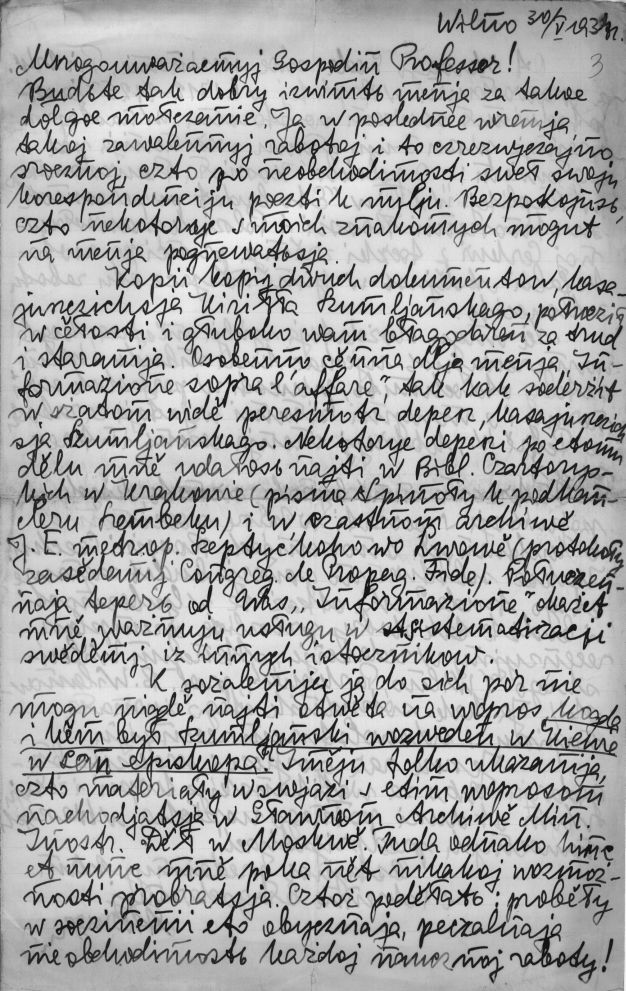 Wilno 30/V 193
3
Mnogouważaemyj Gospodin Professor!
Budьte tak dobry izwinitь menja za takoe
dolgoe mołczanie. Ja w poslednee wremja
takoj zawalennyj rabotoj i to czrezwyczajno
srocznoj, czto po neobchodimosti swel swoju
korespondenciju poczti k nulju. Bezpokojusь,
czto nekotorye s moich znakomych mogut
na menja pogněwatьsja.
Kopii kopij dwuch dokumentow, kasa-
juszczichsja Kiriłła Szumljańskago, połucził
w cělosti i głuboko wam błagodaren za trud
i staranija. Osobenno cěnna dlja menja „In-
formazione sopra l'affare", tak kak soderżit
w sżatom widě peresmotr depesz, kasajuszczich
sja Szumljańskago. Nekotorye depeszi po etomu
dělu mně udałosь najti w Bibl. Czartorys-
kich w Krakowie (pisma Spinoły k podkan-
cleru Szembeku) i w czastnom archiwě
J. E. metrop. Szeptyćkoho wo Lwowě (protokoły
zasědanij Congreg. de Propag. Fide). Połuczen-
naja teperь od Was „Informazione" okażet
mně ważnuju usługu w sistematizacji
swěděnij iz innych istocznikow.
K sożaleniju ja do sich por nie
mogu nigdě najti otwěta na wopros kogda
i kěm był Szumljański wozweden w Kiewe
w san episkopa? Iměju tolko ukazanija,
czto materjały w swjazi s etim woprosom
nachodjatsja w Gławnom Archiwě Min.
Inostr. Děł w Moskwě. Tuda odnako hinc
et nunc mně poka nět nikakoj wozmoż-
nosti probratsja. Cztoż podělatь; proběły
w soczinenii eto obycznaja, peczalnaja
neobchodimostь każdoj naucznoj raboty!